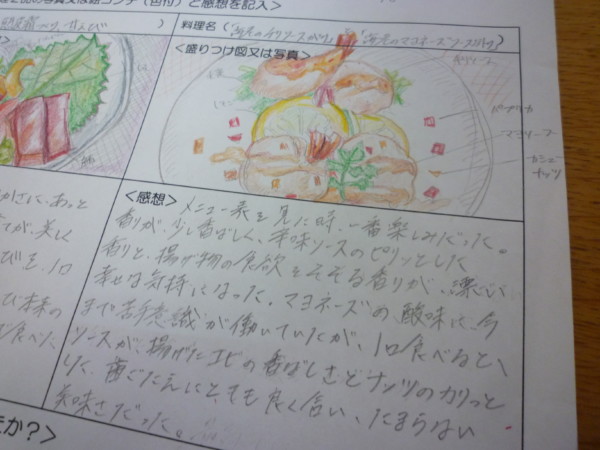 品の写真又は絵コンテ（色付）と感想を記入＞
料理名（海老のチリソースがけ、海老のマヨネーズソースがけ）
＜盛りつけ図又は写真＞
レモン
チリソース
パプリカ
マヨソース
カシュー
ナッツ
＜感想＞
メニュー表を見た時、一番楽しみだった。
香りが、少し香ばしく、辛味ソースのピリッとした
香りと、揚げ物の食欲をそそる香りが、漂い
幸せな気持になった。マヨネーズの酸味に、今
まで苦意識が働いていたが、1口食べると、
ソースが、揚げたエビの香ばしさとナッツのカリっと
歯ごたえにとても良く合い、たまらない
美味さだった。
あっと
が、美しく
び王、1口
び本来の
食べた、
か？＞